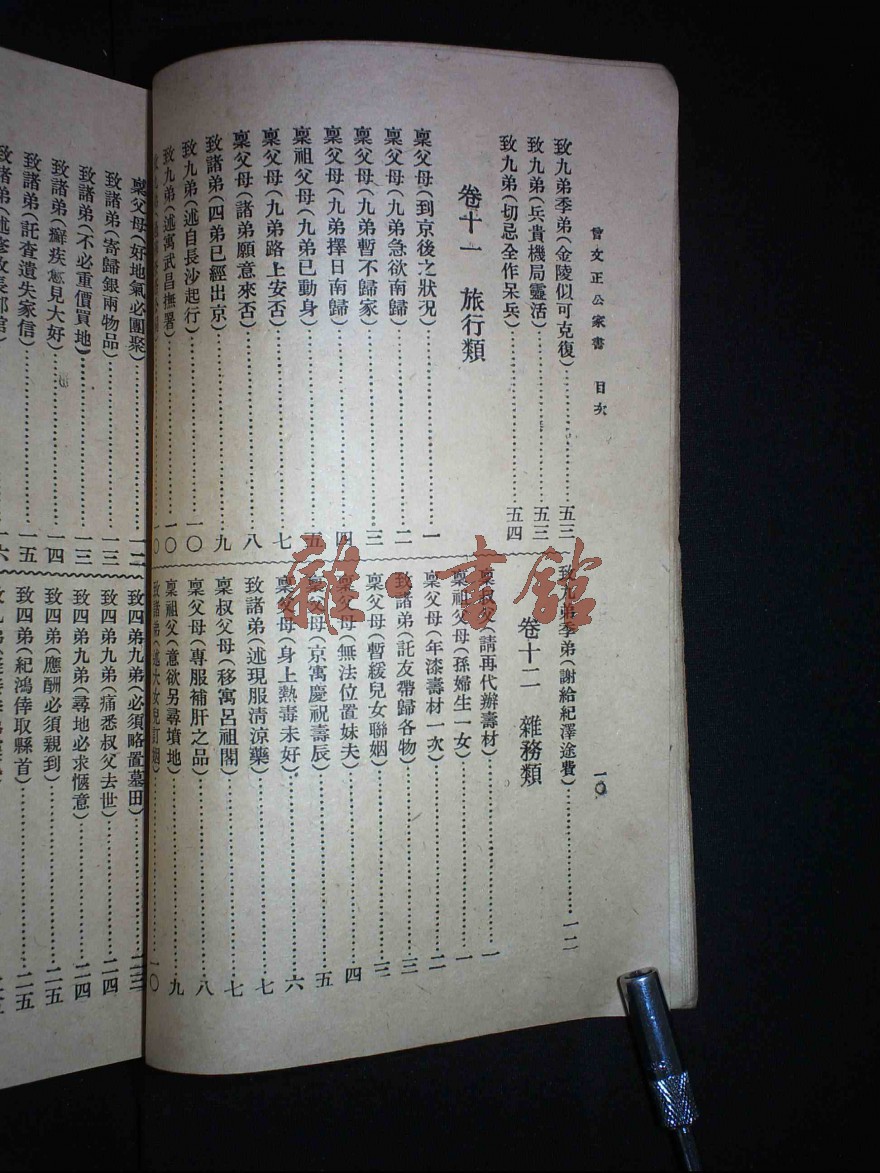 曾文正公家書 目次 一〇
致九弟季弟(金陵似可克復)…………五三
致九弟(兵貴機局靈活)…………五三
致九弟(切忌全作呆兵)…………五四
卷十一 旅行類
稟父母(到京後之狀況)…………一
稟父母(九弟急欲南歸)…………二
稟父母(九弟暫不歸家)…………三
稟父母(九弟擇日南歸)…………四
稟祖父母(九弟已動身)…………五
稟父母(九弟路上安否)…………七
稟父母(諸弟願意來否)…………八
致諸弟(四弟已經出京)…………九
致九弟(述自長沙起行)…………一〇
致九弟(述寓武昌撫署)…………一〇
一〇
致九弟季弟(謝給紀澤途費)…………一二
卷十二 雜務類
稟叔父(請再代辦壽材)…………一
稟祖父母(孫婦生一女)…………一
稟父母(年漆壽材一次)…………二
致諸弟(託友帶歸各物)…………三
稟父母(暫緩兒女聯姻)…………三
稟父母(無法位置妹夫)…………四
稟父母(京寓慶祝壽辰)…………五
稟父母(身上熱毒未好)…………六
致諸弟(述現服清涼藥)…………七
稟叔父母(移寓呂祖閣)…………七
稟父母(專服補肝之品)…………八
稟祖父(意欲另尋墳地)…………九
致諸弟(述大女兒訂姻)…………一〇
稟父母(好地氣必團聚)…………一二
致諸弟(寄歸銀兩物品)…………一三
致諸弟(不必重價買地)…………一三
致諸弟(癬疾愈見大好)…………一四
致諸弟(託查遺失家信)…………一五
致諸弟(述 一六
致四弟九弟(必須略置墓田)…………二三
致四弟九弟(痛悉叔父去世)…………二四
致四弟九弟(尋地必求愜意)…………二四
致四弟(應酬必須親到)…………二五
致四弟(紀鴻倖取縣首)…………二五
雜·書館